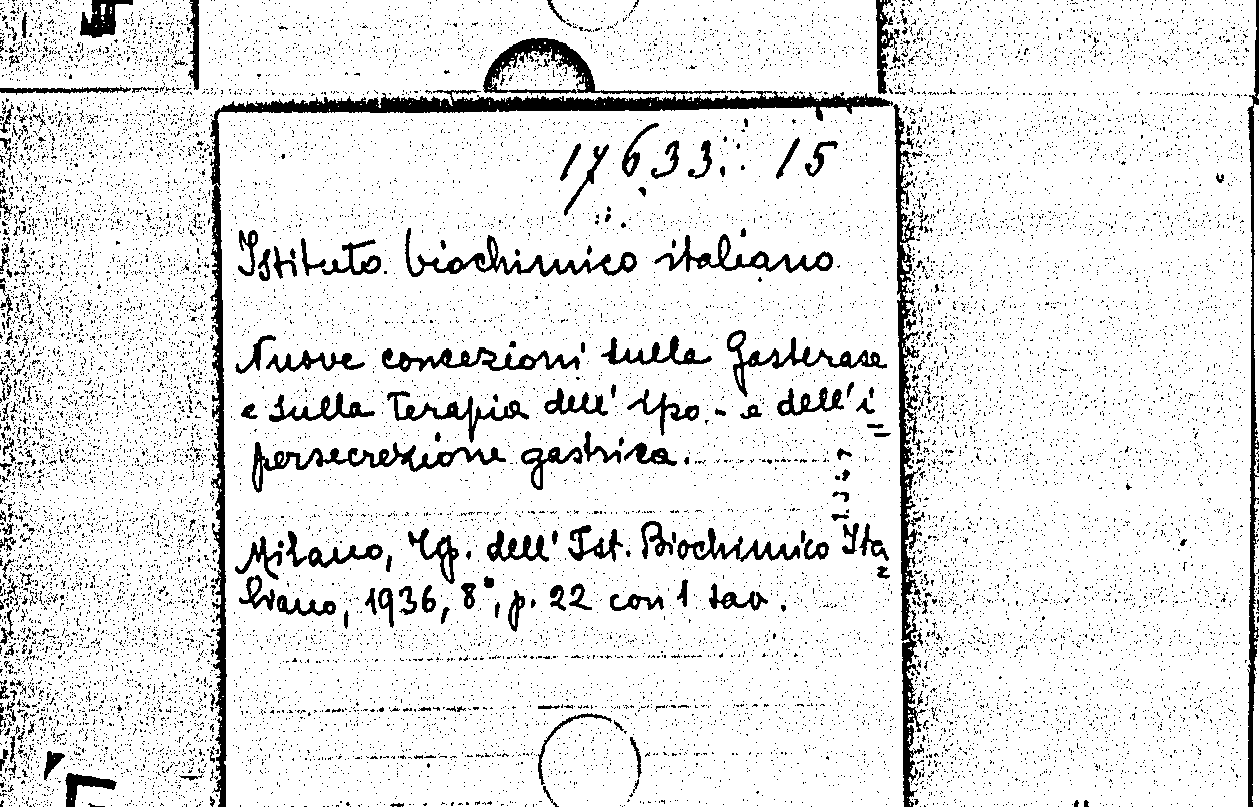 17633. 15
Istituto biochimico italiano
Nuove concezioni sulla Gasterase
e sulla Terapia dell' Ipo- e dell'i=
persecrezione gastrica.
Milano, Tip. dell' Ist. Biochimico Ita=
liano, 1936, 8°, p. 22 con 1 tav.